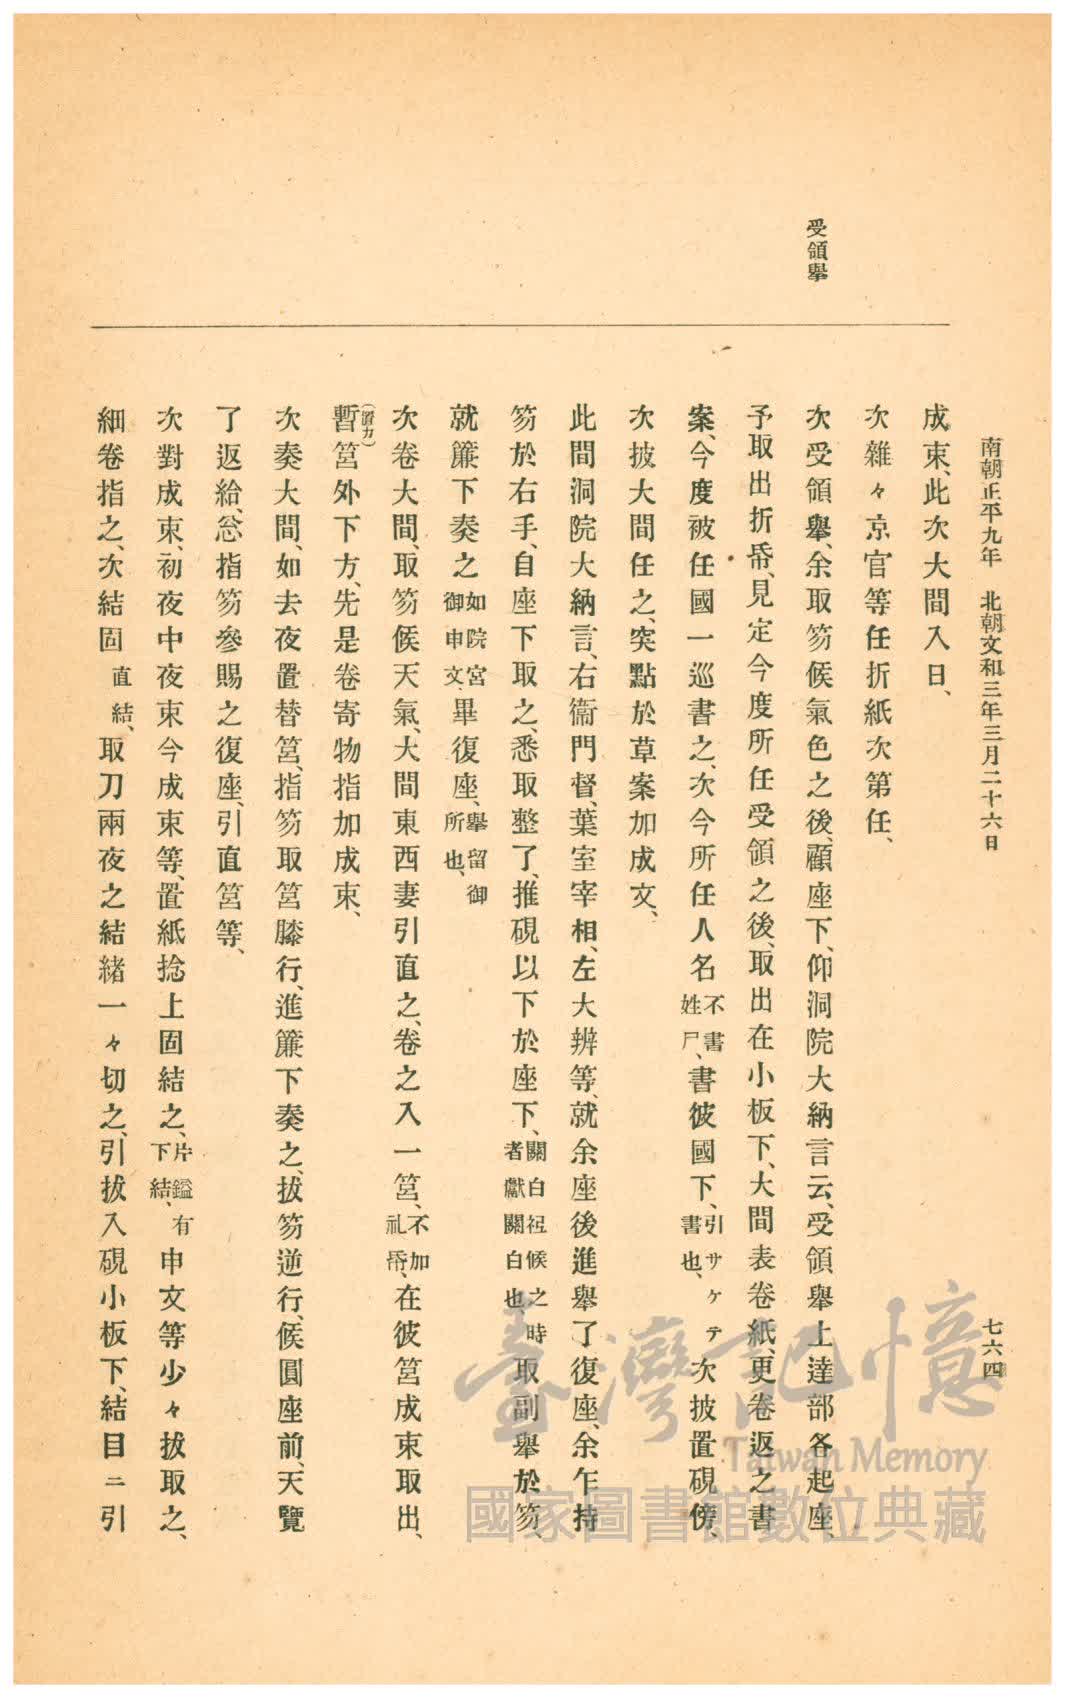 南朝正平九年　北朝文和三年三月二十六日
七六四
受領擧
成束、此次大間入日、
次雜々京官等任折紙次第任、
次受領擧、余取笏候氣色之後、顧座下、仰洞院大納言云、受領擧上達部各起座、
予取出折帋、見定今度所任受領之後、取出在小板下、大間表卷紙、更卷返之書
案、今度被任國一巡書之、次今所任人名不書姓尸、書彼國下、引サケテ書也、次披置硯傍、
次披大間任之、突點於草案加成文、
此間洞院大納言、右衞門督、葉室宰相、左大辨等、就余座後進擧了復座、余乍持
笏於右手、自座下取之、悉取整了、推硯以下於座下、關白祗候之時者獻關白也、取副擧於笏、
就簾下奏之如院宮御申文、畢復座、擧留御所也、
次卷大間、取笏候天氣、大間東西妻引直之、卷之入一筥、不加礼帋、在彼筥成束取出、
暫(硏カ)筥外下方、先是卷寄物指加成束、
次奏大間、如去夜置替筥、指笏取筥膝行、進簾下奏之、拔笏逆行、候圓座前、天覽
了返給、忩指笏參賜之復座、引直筥等、
次對成束、初夜中夜束今成束等、置紙捻上固結之、片鎰有下結、申文等少々拔取之、
細卷指之、次結固直結、取刀兩夜之結緖一々切之、引拔入硯小板下、結目ニ引
臺灣記憶
Taiwan Memory
國家圖書館數位典藏